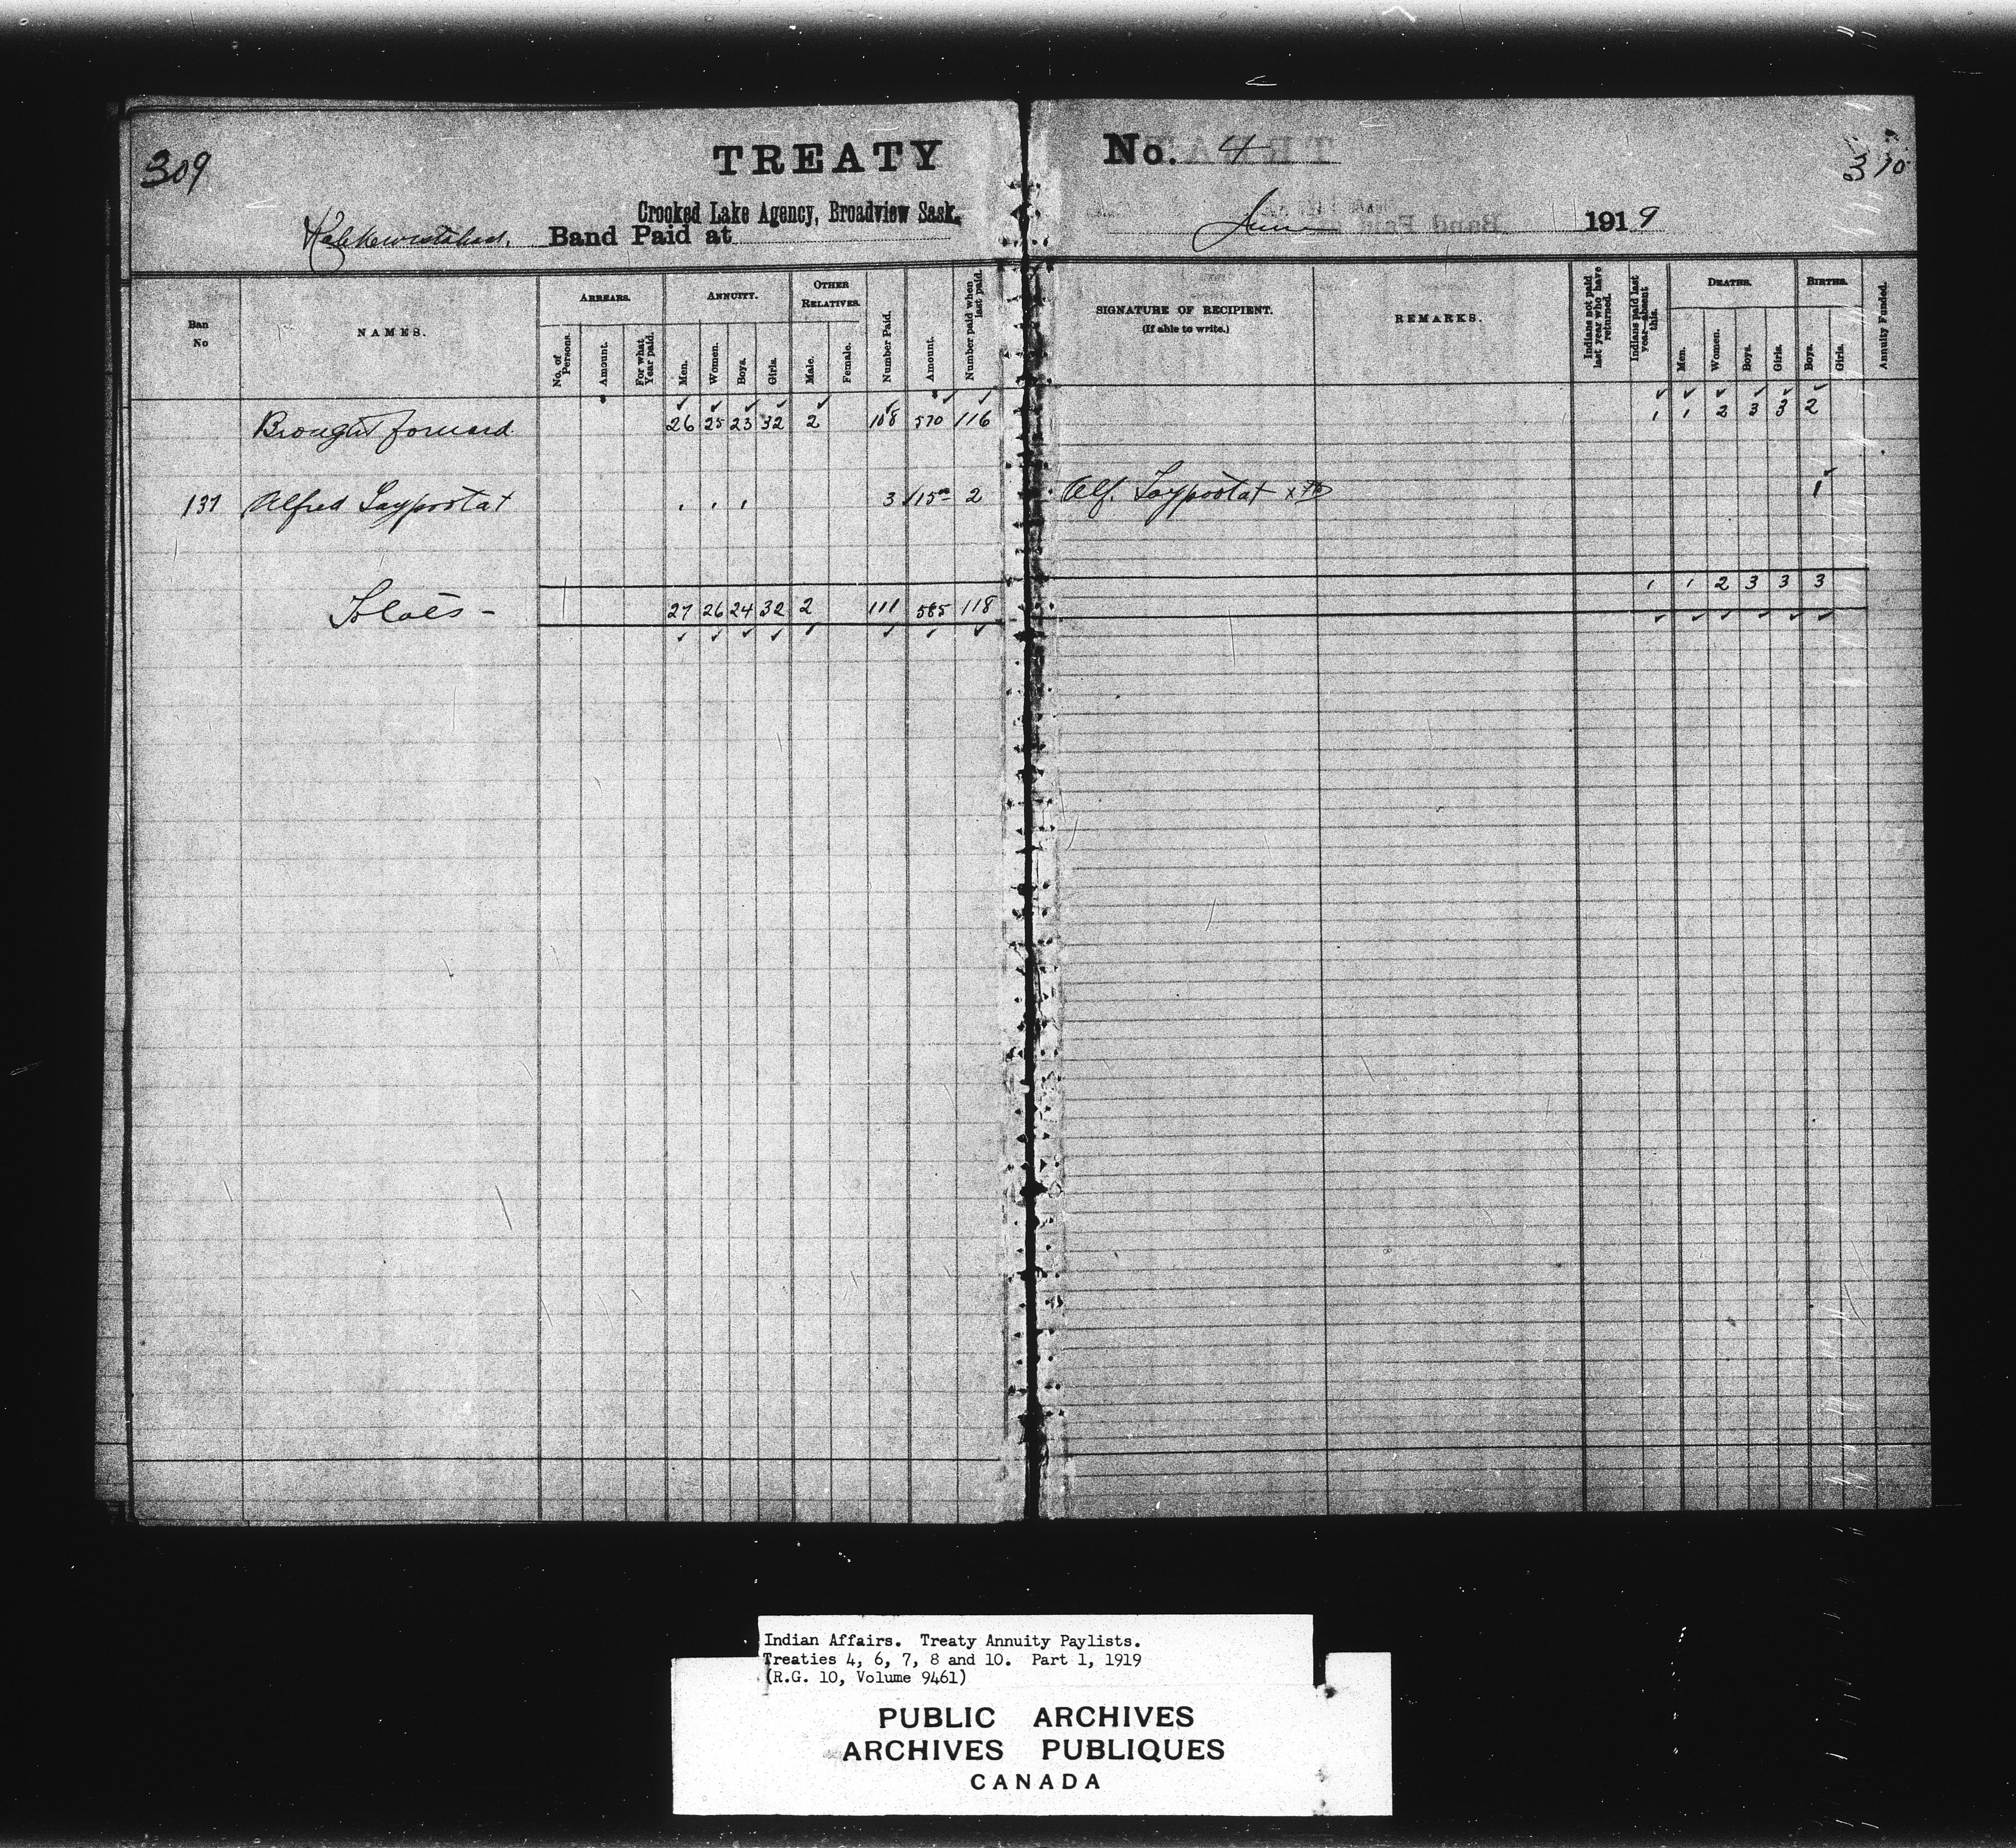 309
TREATY
No. 4
310
Crooked Lake Agency, Broadview Sask.
Band Paid at
June 1919
Ban No
NAMES.
ARREARS.
No. of Persons.
Amount.
For what Year paid.
ANNUITY.
Men.
Women.
Boys.
Girls.
OTHER RELATIVES.
Male.
Female.
Number Paid.
Amount.
Number paid when last paid.
SIGNATURE OF RECIPIENT.
(If able to write.)
REMARKS.
Indians not paid last year who have returned.
Indians paid last year—absent this.
DEATHS.
Men.
Women.
Boys.
Girls.
BIRTHS.
Boys.
Girls.
Annuity Funded.
Brought forward 26 25 23 32 2 108 570 116 1 1 2 3 3 2
137 Alfred Saypostat 1 1 1 3 15 2 Alf. Saypostat x 1
27 26 24 32 2 111 585 118 1 1 2 3 3 3
Indian Affairs. Treaty Annuity Paylists.
Treaties 4, 6, 7, 8 and 10. Part 1, 1919
(R.G. 10, Volume 9461)
PUBLIC ARCHIVES
ARCHIVES PUBLIQUES
CANADA